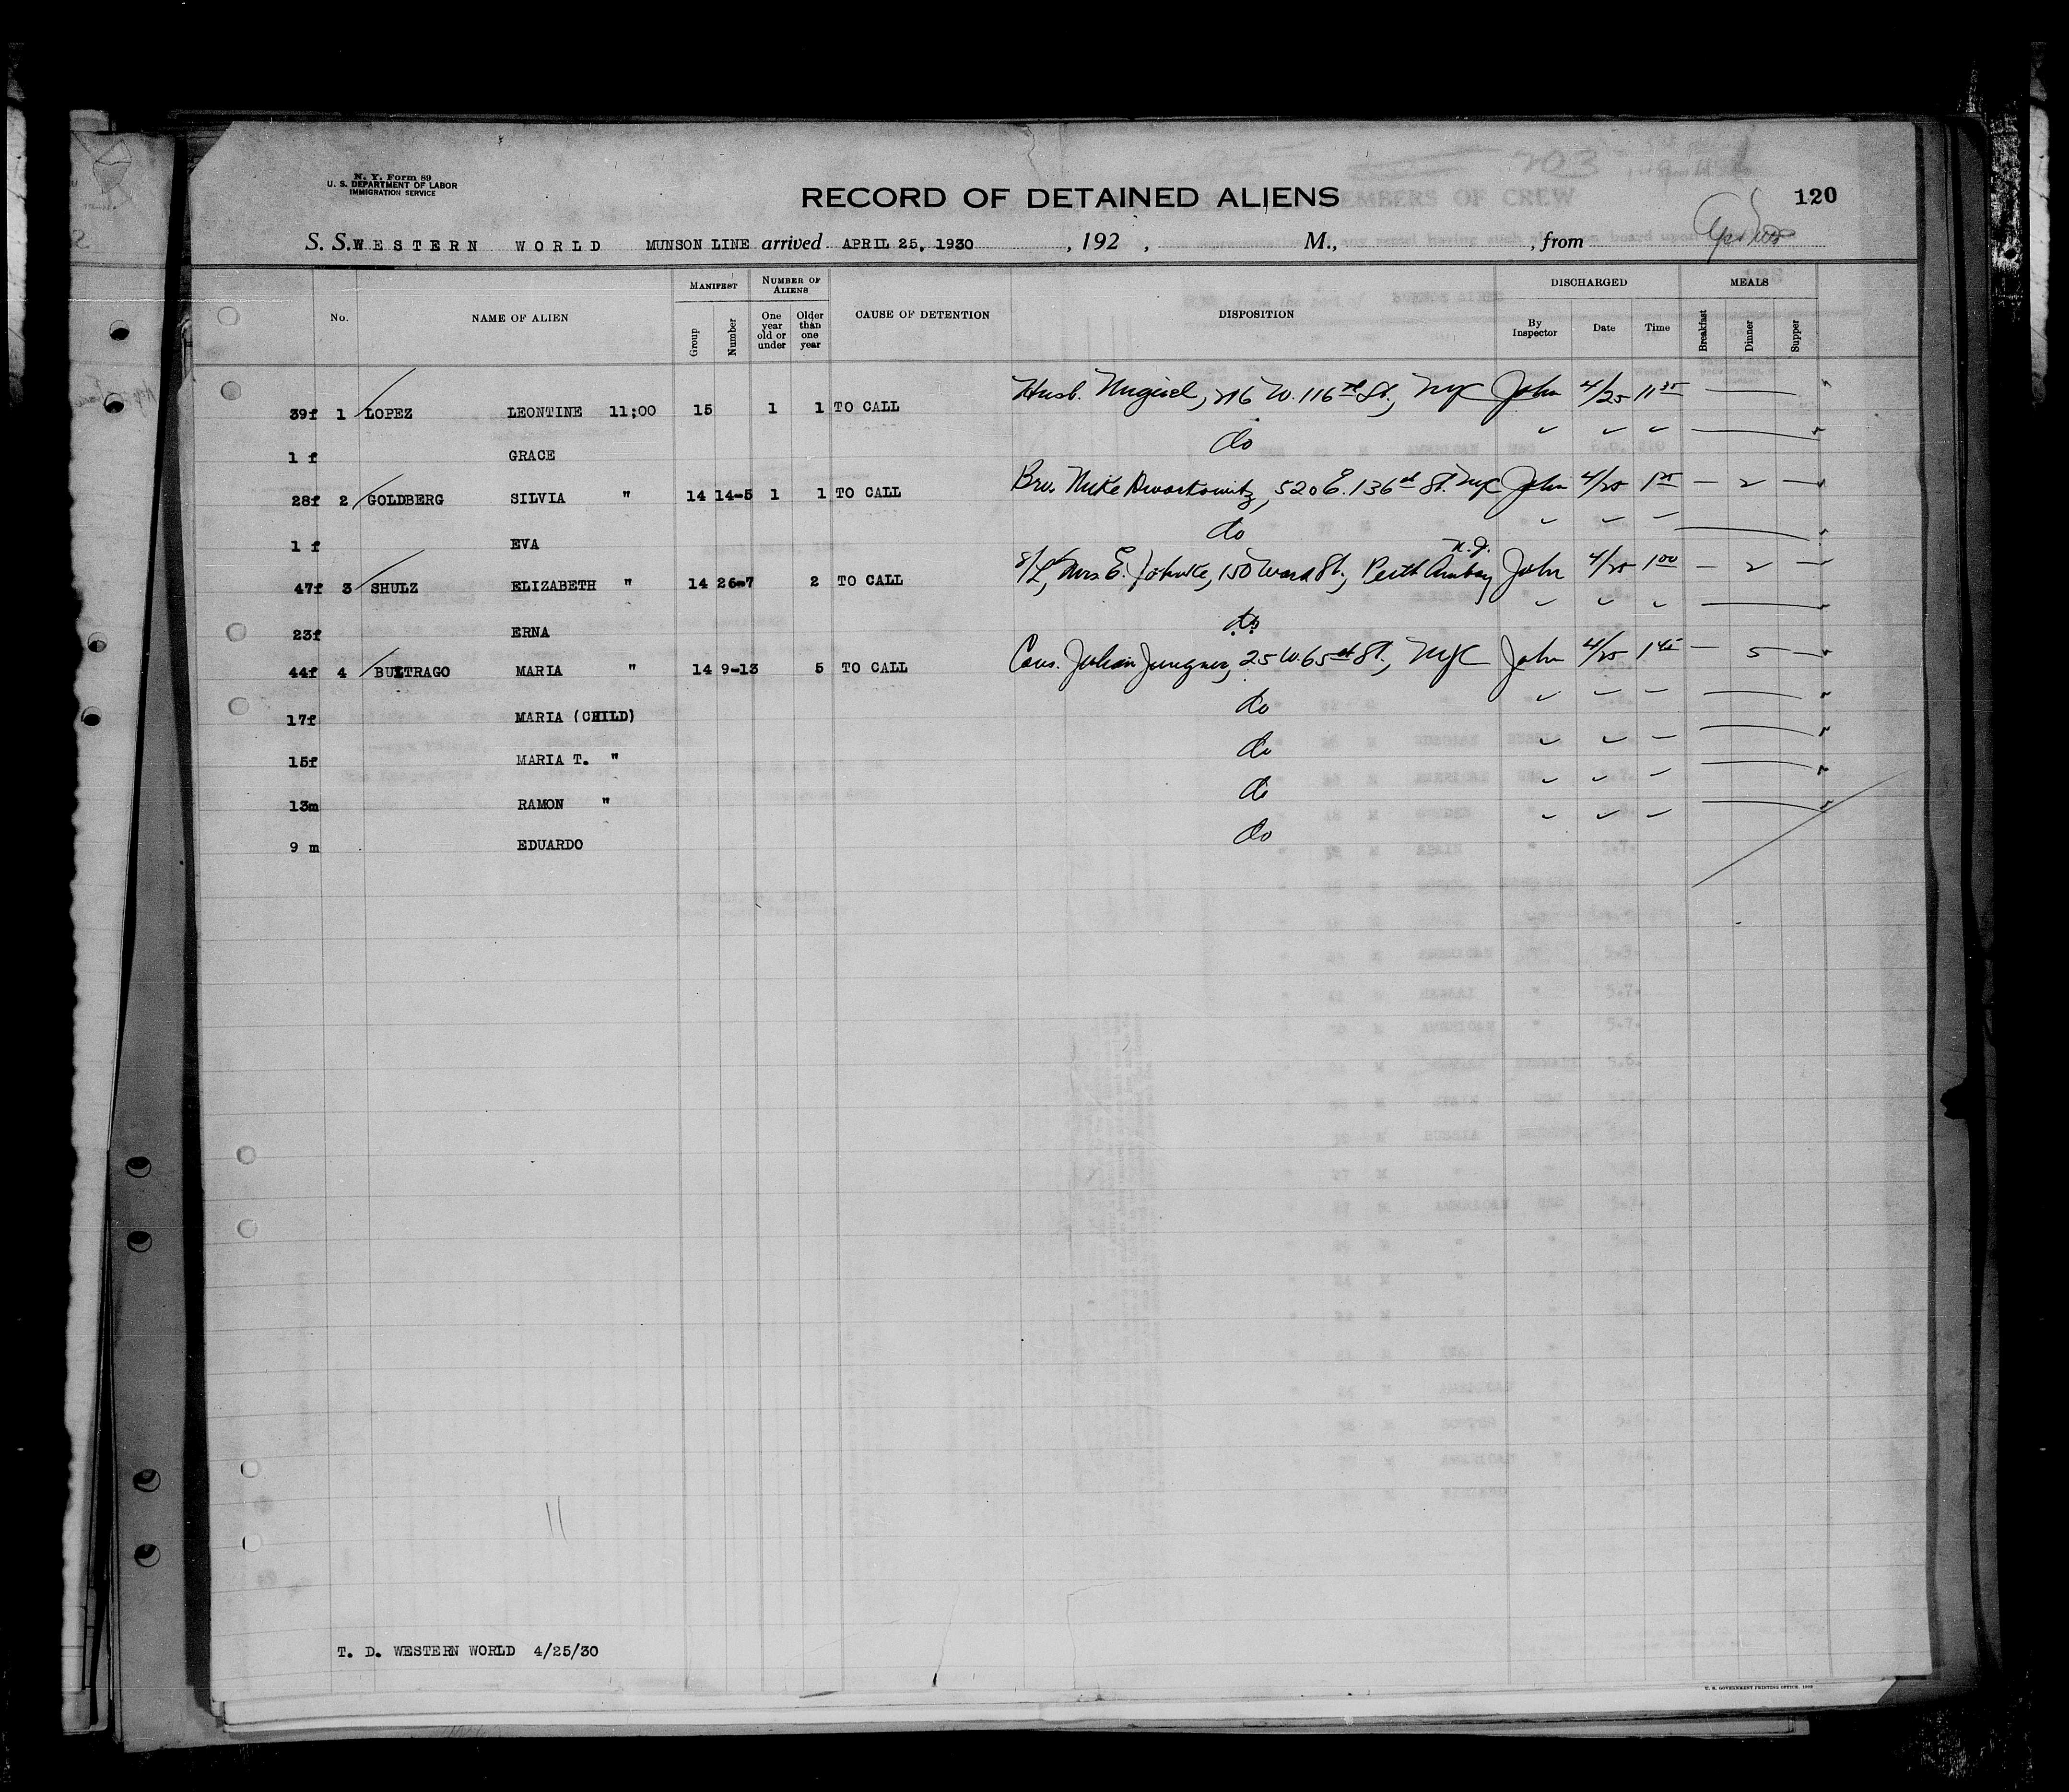 N. Y. Form 89
U. S. DEPARTMENT OF LABOR
IMMIGRATION SERVICE
203
RECORD OF DETAINED ALIENS
MEMBERS OF CREW
120
S. S. WESTERN WORLD MUNSON LINE arrived APRIL 25, 1930, 192 , M., , from
No. NAME OF ALIEN MANIFEST Group Number NUMBER OF ALIENS One year old or under Older than one year CAUSE OF DETENTION DISPOSITION DISCHARGED By Inspector Date Time MEALS Breakfast Dinner Supper
39f 1 LOPEZ LEONTINE 11;00 15 1 1 TO CALL Husb. Miguel, 216 W. 116th St., NYC John 4/25 11 25 —
1 f GRACE do ✓ ✓ ✓
28f 2 GOLDBERG SILVIA " 14 14-5 1 1 TO CALL Bro. Mike Dwortowitz, 520 E. 136th St. NYC John 4/25 1 25 — 2 —
1 f EVA do ✓ ✓ —
47f 3 SHULZ ELIZABETH " 14 26-7 2 TO CALL Mrs E. 150 Ward St., Perth Amboy N.J. John 4/25 1 00 — 2 —
23f ERNA do ✓ ✓ ✓
44f 4 BUITRAGO MARIA " 14 9-13 5 TO CALL Cous. Julian 25 W. 65th St., NYC John 4/25 1 45 — 5 —
17f MARIA (CHILD) do ✓ — —
15f MARIA T. " do ✓ ✓ —
13m RAMON " do ✓ ✓ —
9 m EDUARDO do ✓ ✓ —
11
T. D. WESTERN WORLD 4/25/30